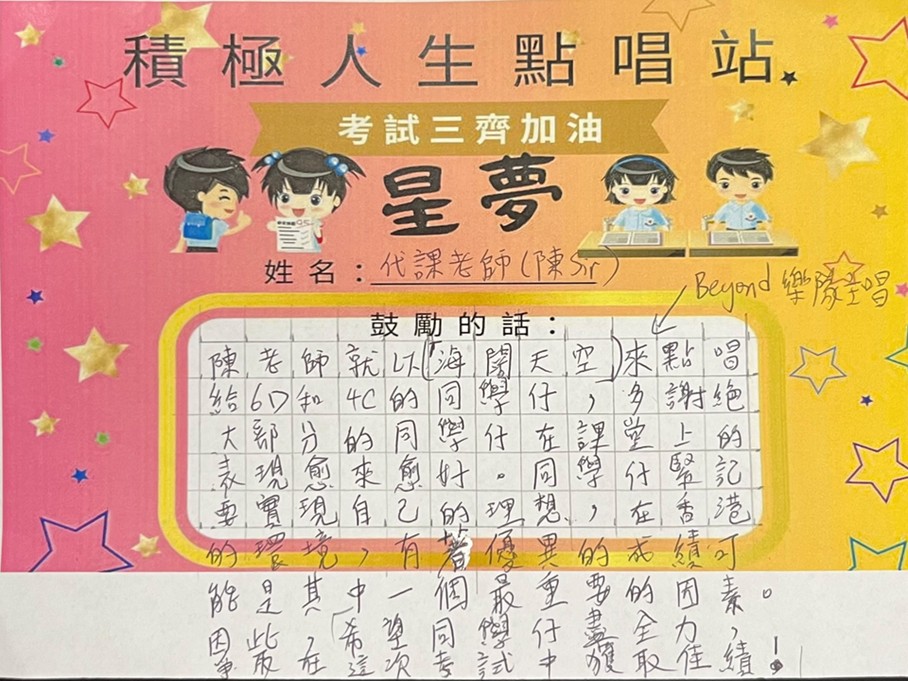 積極人生點唱站
考試三齊加油
星夢
姓名:代課老師(陳Sir)
Beyond 樂隊主唱
鼓勵的話:
陳老師就以「海闊天空」來點唱
給6D和4C的同學仔,多謝絕
大部分的同學仔在課堂上的
表現愈來愈好。同學仔緊記
要實現自己的理想,在香港
的環境,有著優異的成績可
能是其中一個最重要的因素。
因此,「希望同學仔盡全力,
爭取在這次考試中獲取佳績!